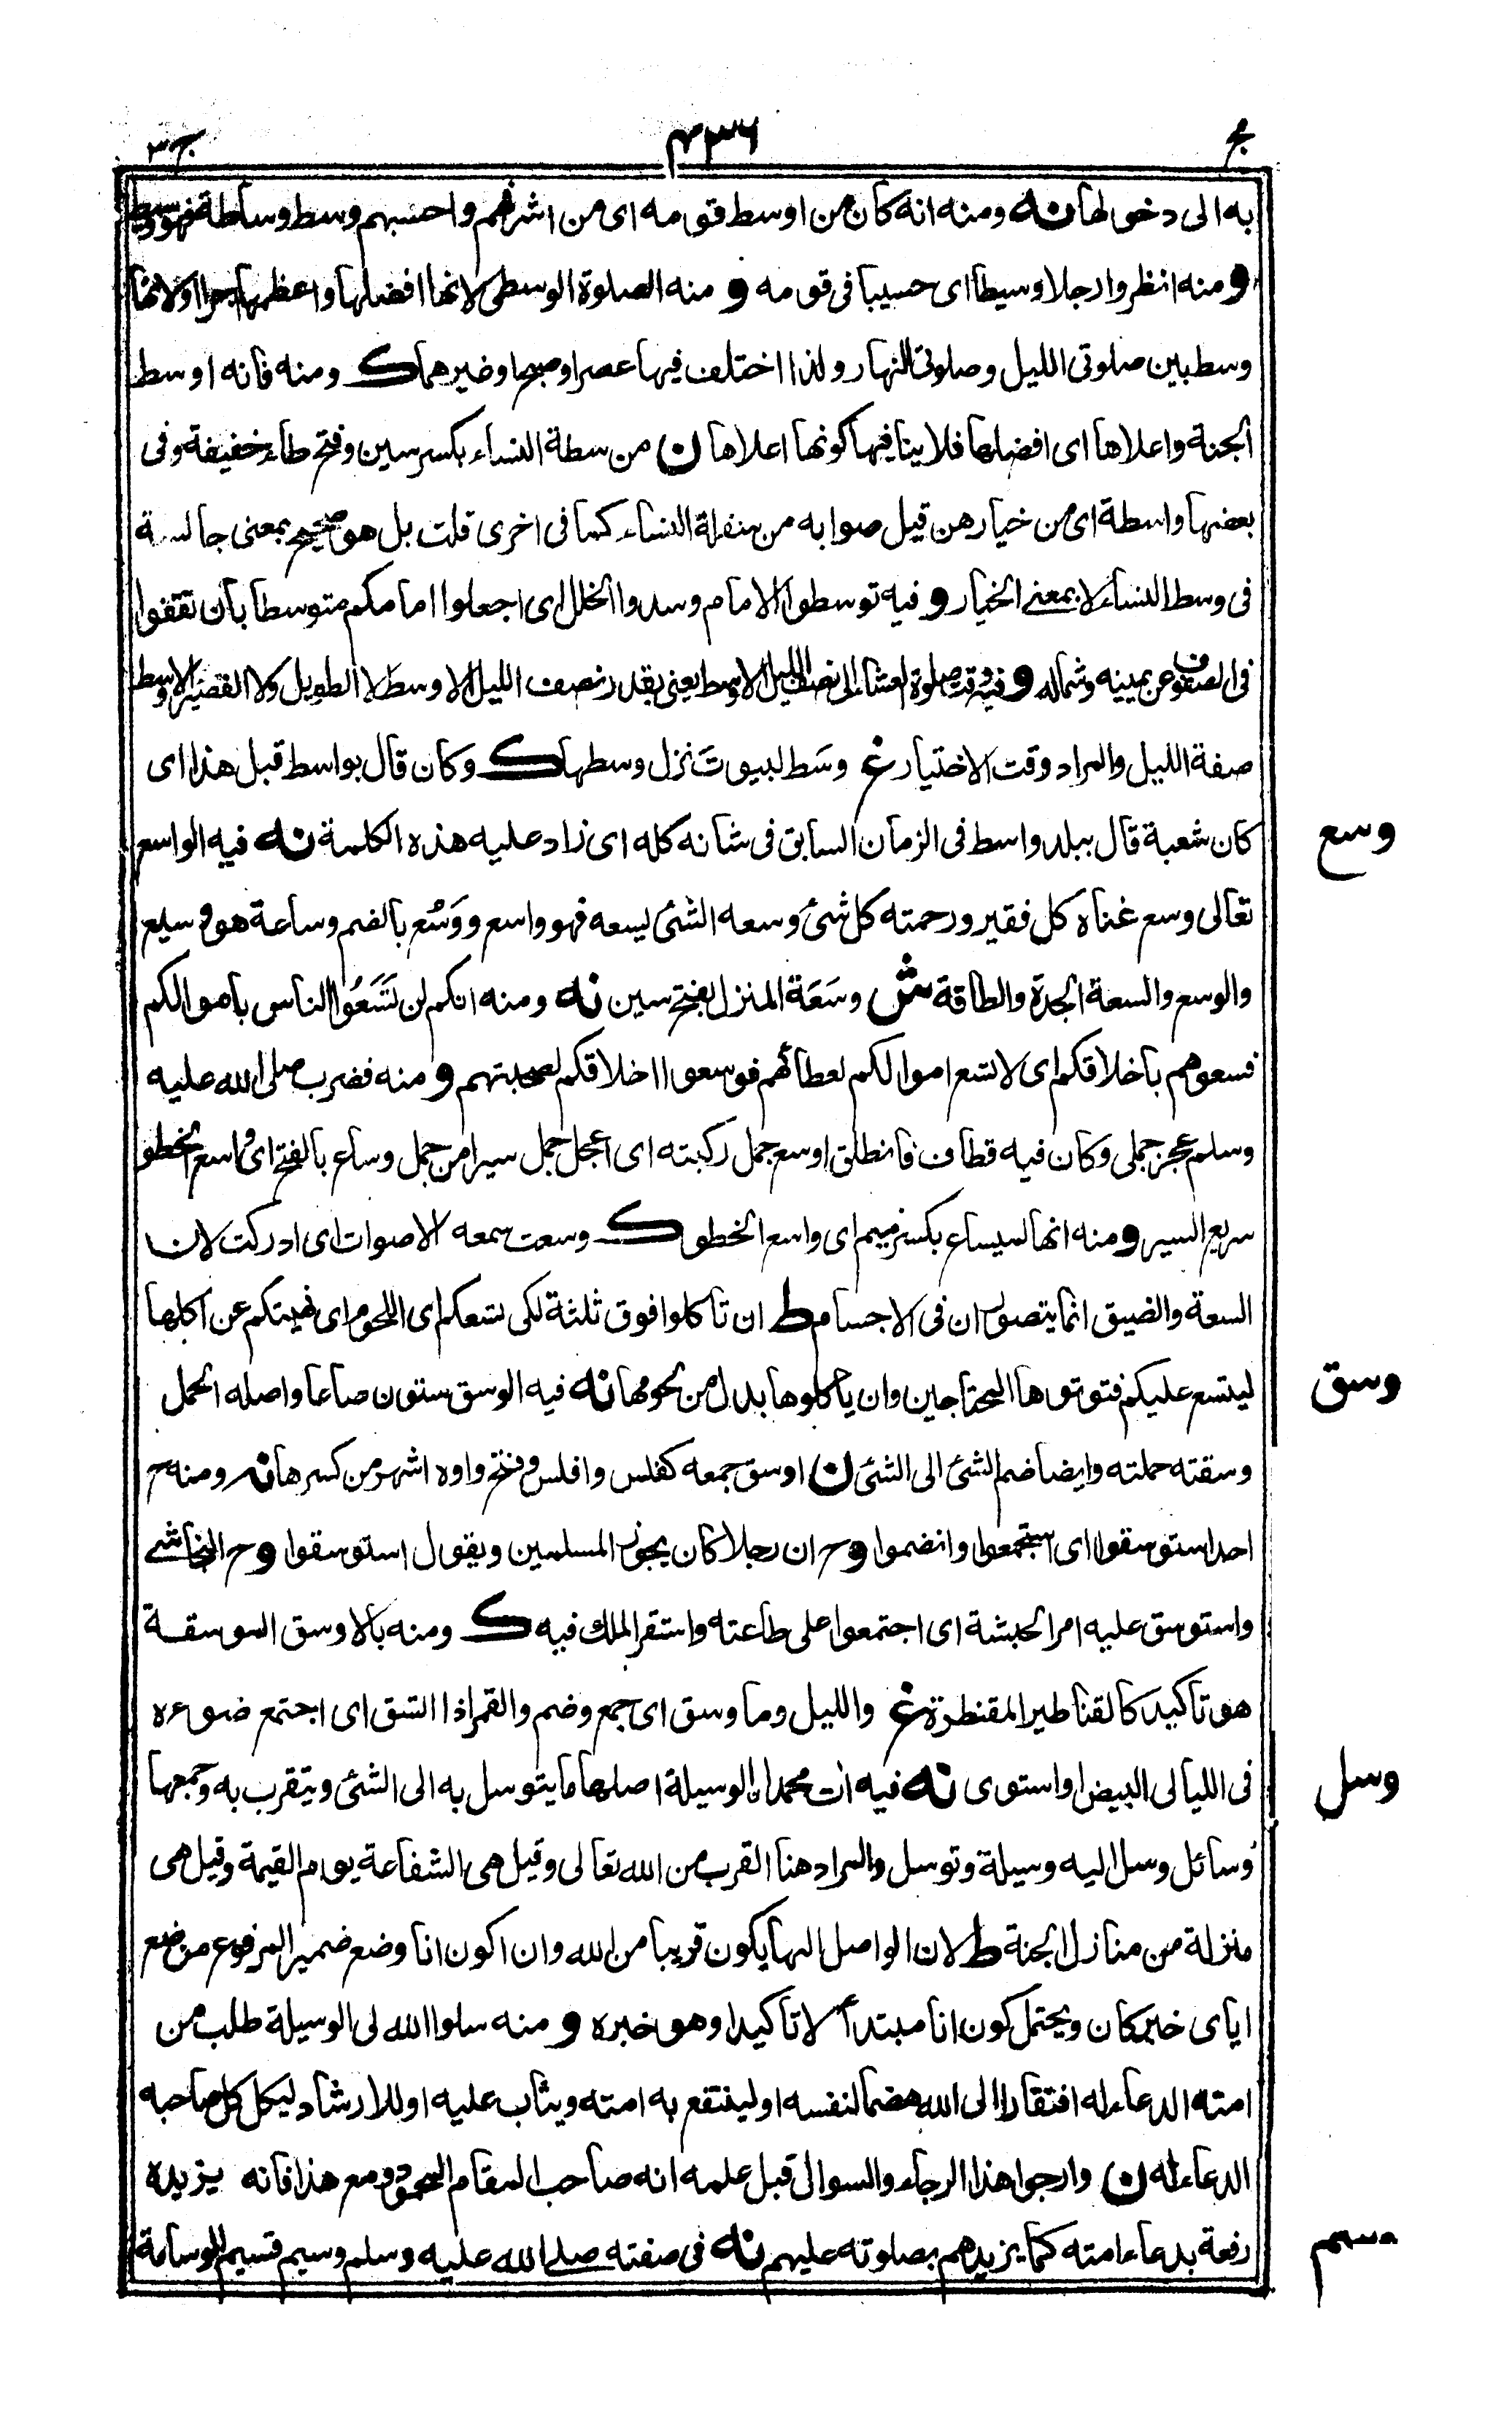 مج ۴۳۶ ج٣
به الى دخولها نه ومنه انه كان من اوسط قومه اى من اشرفهم واحسبهم وسط وساطة فهو وسيط
ومنه انظروا رجلا وسيطا اى حسيبا فى قومه و منه الصلوة الوسطى لانها افضلها واعظمها اجرا اولانها
وسط بين صلوتى الليل وصلوتى النهار ولذا اختلف فيها عصرا وصبحا وغيرهما ك ومنه فانه اوسط
الجنة واعلاها اى افضلها فلا ينافيها كونها اعلاها ن من سطة النساء بكسر سين وفتح طاء خفيفة وفى
بعضها واسطة اى من خيارهن قيل صوابه من سفلة النساء كما فى اخرى قلت بل هو صحيح بمعنى جالسة
فى وسط النساء لا بمعنى الخيار و فيه توسطوا الامام وسدوا الخلل اى اجعلوا امامكم متوسطا بان تقفوا
فى الصفوف عن يمينه وشماله و فيه وقت صلوة العشاء الى نصف الليل الاوسط يعنى بقدر نصف الليل الاوسط لا الطويل ولا القصير والاوسط
صفة الليل والمراد وقت الاختيار غ وسَط لبيوت نزل وسطها ك وكان قال بواسط قبل هذا اى
كان شعبة قال ببلد واسط فى الزمان السابق فى شانه كله اى زاد عليه هذه الكلمة نه فيه الواسع
وسع
تعالى وسع غناه كل فقير ورحمته كل شئ وسعه الشئ يسعه فهو واسع ووَسُع بالضم وساعة هو وسيع
والوسع والسعة الجدة والطاقة ش وسَعَة المنزل بفتح سين نه ومنه انكم لن تَسَعُوا الناس باموالكم
فسعوهم باخلاقكم اى لا تسع اموالكم لعطائهم فوسعوا اخلاقكم لصحبتهم و منه فضرب صلى الله عليه
وسلم عجز جملى وكان فيه قطاف فانطلق اوسع جمل ركبته اى اعجل جمل سيرا من جمل وساع بالفتح اى واسع الخطو
سريع السير ومنه انها لميساع بكسر ميم اى واسع الخطو ك وسعت سمعه الاصوات اى ادركت لان
السعة والضيق انما يتصوران فى الاجسام ط ان تاكلوا فوق ثلثة لكى تسعكم اى اللحوم اى نهيتكم عن اكلها
ليتسع عليكم فتوتوها المحتاجين وان ياكلوها بدل من لحومها نه فيه الوسق ستون صاعا واصله الحمل
وسق
وسقته حملته وايضا ضم الشئ الى الشئ ن اوسق جمعه كفلس وافلس وفتح واوه اشهر من كسرها نه ومنه ح
احد استوسقوا اى استجمعوا وانضموا وح ان رجلا كان يجوز المسلمين ويقول استوسقوا وح النجاشے
واستوسق عليه امر الحبشة اى اجتمعوا على طاعته واستقر الملك فيه ك ومنه بالاوسق الموسقة
هو تاكيد كالقناطير المقنطرة غ والليل وما وسق اى جمع وضم والقمر اذا اتسق اى اجتمع ضوءه
فى الليالى البيض او استوى نه فيه ات محمدا ن الوسيلة اصلها ما يتوسل به الى الشئ ويتقرب به وجمعها
وسل
وسائل وسل اليه وسيلة وتوسل والمراد هنا القرب من الله تعالى وقيل هى الشفاعة يوم القيمة وقيل هى
منزلة من منازل الجنة ط لان الواصل اليها يكون قريبا من الله وان اكون انا وضع ضمير المرفوع موضع
اياى خبر كان ويحتمل كون انا مبتدأ لا تاكيدا وهو خبره و منه سلوا الله لى الوسيلة طلب من
امته الدعاء له افتقارا الى الله هضما لنفسه او لينتفع به امته ويثاب عليه او للارشاد ليكل كل صاحبه
الدعاء له ن وارجوا هذا الرجاء والسوال قبل علمه انه صاحب المقام المحمود ومع هذا فانه يزيده
رفعة بدعاء امته كما يزيدهم بصلوته عليهم نه فى صفته صلے الله عليه وسلم وسيم قسيم الوسامة
وسم